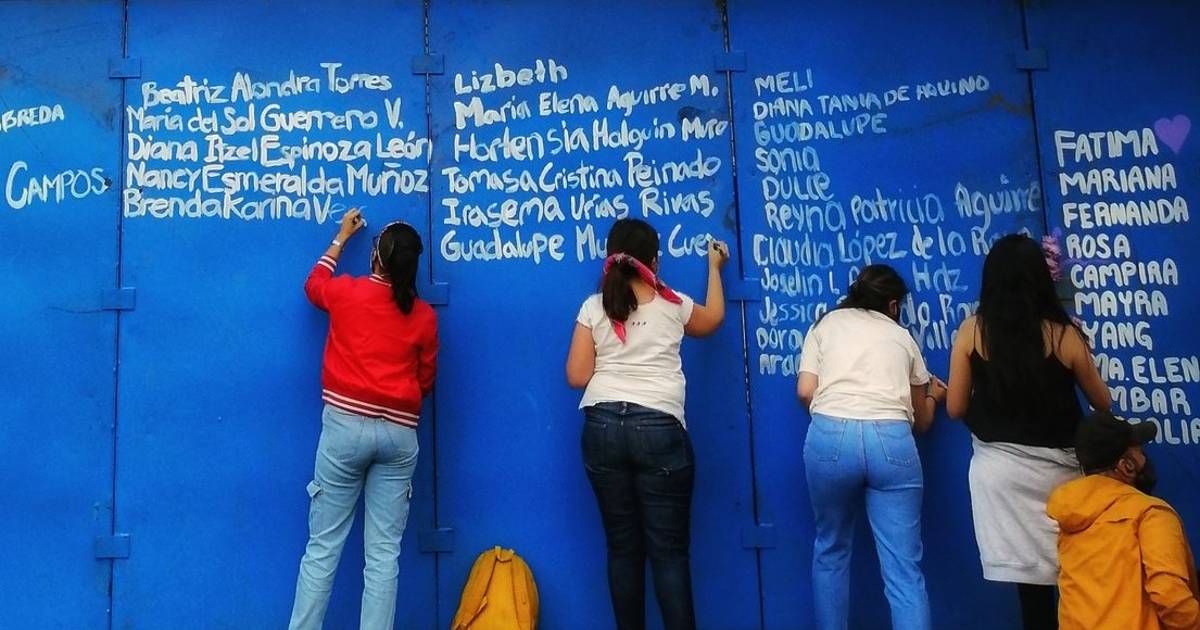 BREDA
CAMPOS
Beatriz Alondra Torres
Maria del Sol Guerrero V.
Diana Itzel Espinoza León
Nancy Esmeralda Muñoz
Brenda Karina Ve
Lizbeth
María Elena Aguirre M.
Hortensia Halguin Muro
Tomasa Cristina Peinado
Irasema Urias Rivas
Guadalupe Cue
MELI
DIANA TANIA DE AQUINO
GUADALUPE
SONIA
DULCE
Reyna Patricia Aguirre
Claudia López de la
Joselin Hdz
Jessica
FATIMA
MARIANA
FERNANDA
ROSA
CAMPIRA
MAYRA
YANG
MA. ELEN
MBAR